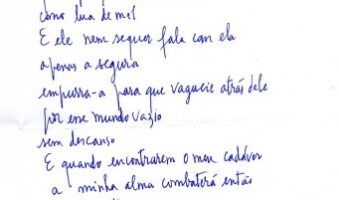 como lua de mel
E ele nem sequer fala com ela
apenas a segura
empurra-a para que vagueie atrás dele
por esse mundo vazio
sem descanso
E quando encontrarem o meu cadáver
a minha alma combaterá então